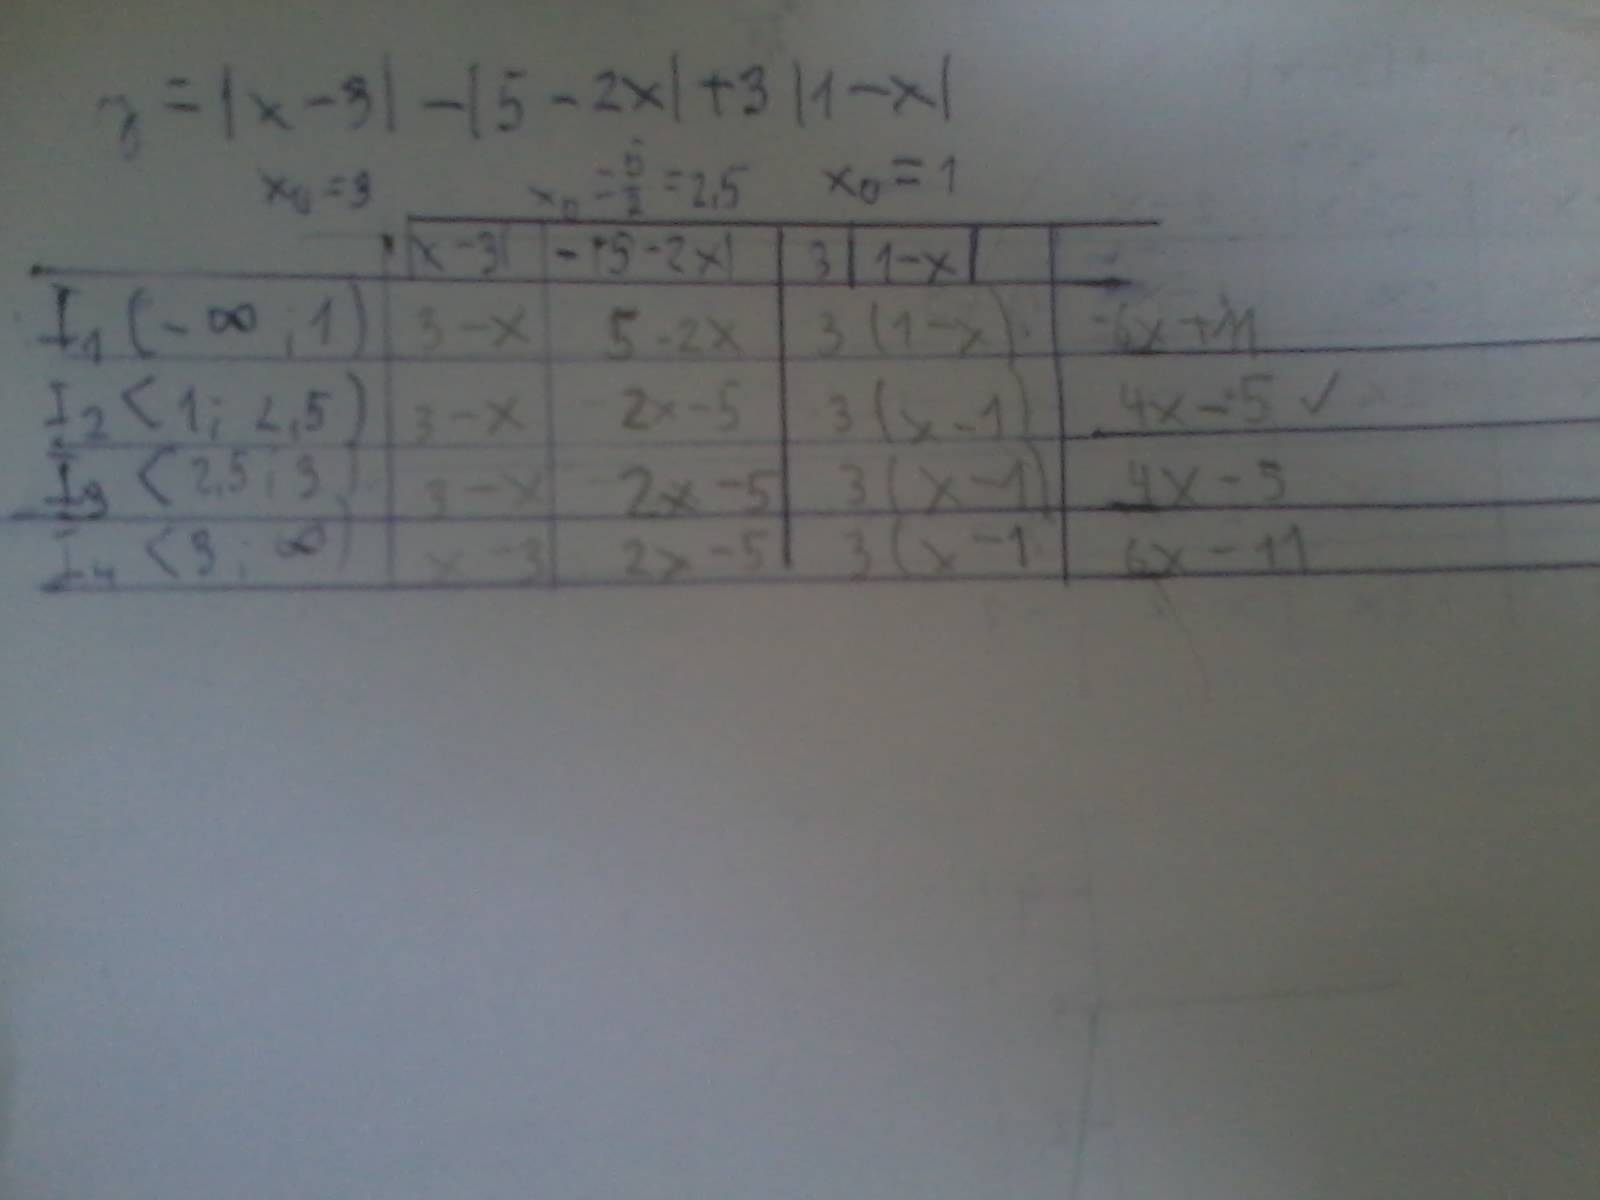 y = |x-3| -|5-2x| +3|1-x|
x₀=3 x₀=5/2=2,5 x₀=1
|x-3| -|5-2x| 3|1-x|
I₁ (-∞;1) 3-x 5-2x 3(1-x) -6x+11
I₂ <1; 2,5) 3-x 2x-5 3(x-1) 4x-5 ✓
I₃ <2,5;3) 3-x 2x-5 3(x-1) 4x-5
I₄ <3;∞) x-3 2x-5 3(x-1 6x-11